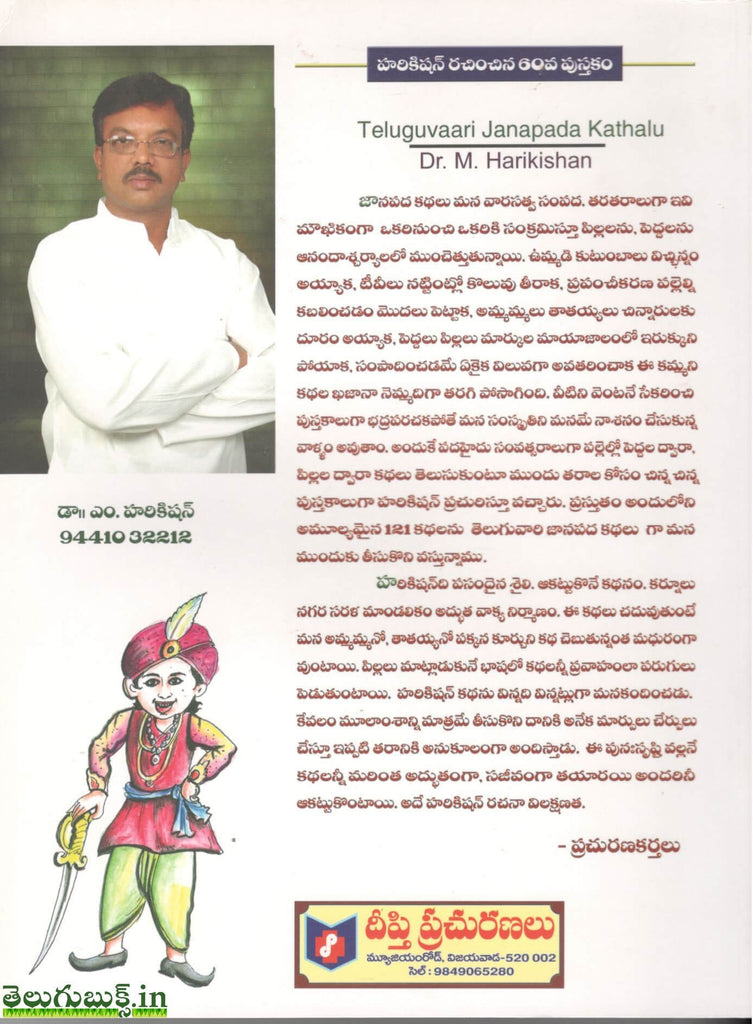 హరికిషన్ రచించిన 60వ పుస్తకం
Teluguvaari Janapada Kathalu
Dr. M. Harikishan
జానపద కథలు మన వారసత్వ సంపద. తరతరాలుగా ఇవి
మౌఖికంగా ఒకరినుంచి ఒకరికి సంక్రమిస్తూ పిల్లలను, పెద్దలను
ఆనందాశ్చర్యాలలో ముంచెత్తుతున్నాయి. ఉమ్మడి కుటుంబాలు విచ్ఛిన్నం
అయ్యాక, టీవీలు నట్టింట్లో కొలువు తీరాక, ప్రపంచీకరణ పల్లెల్ని
కబళించడం మొదలు పెట్టాక, అమ్మమ్మలు తాతయ్యలు చిన్నారులకు
దూరం అయ్యాక, పెద్దలు పిల్లలు మార్కుల మాయాజాలంలో ఇరుక్కుని
పోయాక, సంపాదించడమే ఏకైక విలువగా అవతరించాక ఈ కమ్మని
కథల ఖజానా నెమ్మదిగా తరగి పోసాగింది. వీటిని వెంటనే సేకరించి
పుస్తకాలుగా భద్రపరచకపోతే మన సంస్కృతిని మనమే నాశనం చేసుకున్న
వాళ్ళం అవుతాం. అందుకే పదహైదు సంవత్సరాలుగా పల్లెల్లో పెద్దల ద్వారా,
పిల్లల ద్వారా కథలు తెలుసుకుంటూ ముందు తరాల కోసం చిన్న చిన్న
పుస్తకాలుగా హరికిషన్ ప్రచురిస్తూ వచ్చారు. ప్రస్తుతం అందులోని
అమూల్యమైన 121 కథలను తెలుగువారి జానపద కథలు గా మన
ముందుకు తీసుకొని వస్తున్నాము.
హరికిషన్‌ది పసందైన శైలి. ఆకట్టుకొనే కథనం. కర్నూలు
నగర సరళ మాండలికం అద్భుత వాక్య నిర్మాణం. ఈ కథలు చదువుతుంటే
మన అమ్మమ్మనో, తాతయ్యనో పక్కన కూర్చుని కథ చెబుతున్నంత మధురంగా
వుంటాయి. పిల్లలు మాట్లాడుకునే భాషలో కథలన్నీ ప్రవాహంలా పరుగులు
పెడుతుంటాయి. హరికిషన్ కథను విన్నది విన్నట్లుగా మనకందించడు.
కేవలం మూలాంశాన్ని మాత్రమే తీసుకొని దానికి అనేక మార్పులు చేర్పులు
చేస్తూ ఇప్పటి తరానికి అనుకూలంగా అందిస్తాడు. ఈ పునఃసృష్టి వల్లనే
కథలన్నీ మరింత అద్భుతంగా, సజీవంగా తయారయి అందరినీ
ఆకట్టుకొంటాయి. అదే హరికిషన్ రచనా విలక్షణత.
- ప్రచురణకర్తలు
డా॥ ఎం. హరికిషన్
94410 32212
దీప్తి ప్రచురణలు
మ్యూజియంరోడ్, విజయవాడ-520 002
సెల్ : 9849065280
తెలుగుబుక్స్.in